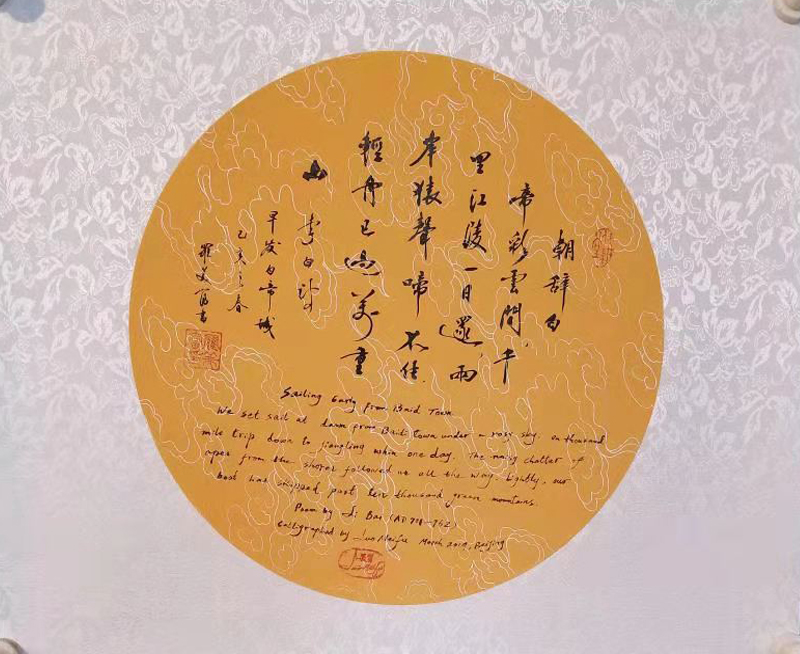 朝辭白
帝彩雲間,千
里江陵一日還,兩
岸猿聲啼不住,
輕舟已過萬重
山 李白詩
早发白帝城
己亥之春
羅美富书
Sailing Early from Baid Town
We set sail at dawn from Baidi Town under a rosy sky. On thousand
mile trip down to Jiangling within one day. The noisy chatter of
apes from the shores followed us all the way. Lightly, our
boat had skipped past ten thousand green mountains.
Poem by Li Bai (AD 701-762)
Calligraphed by Luo Meifu March 2019, Beijing